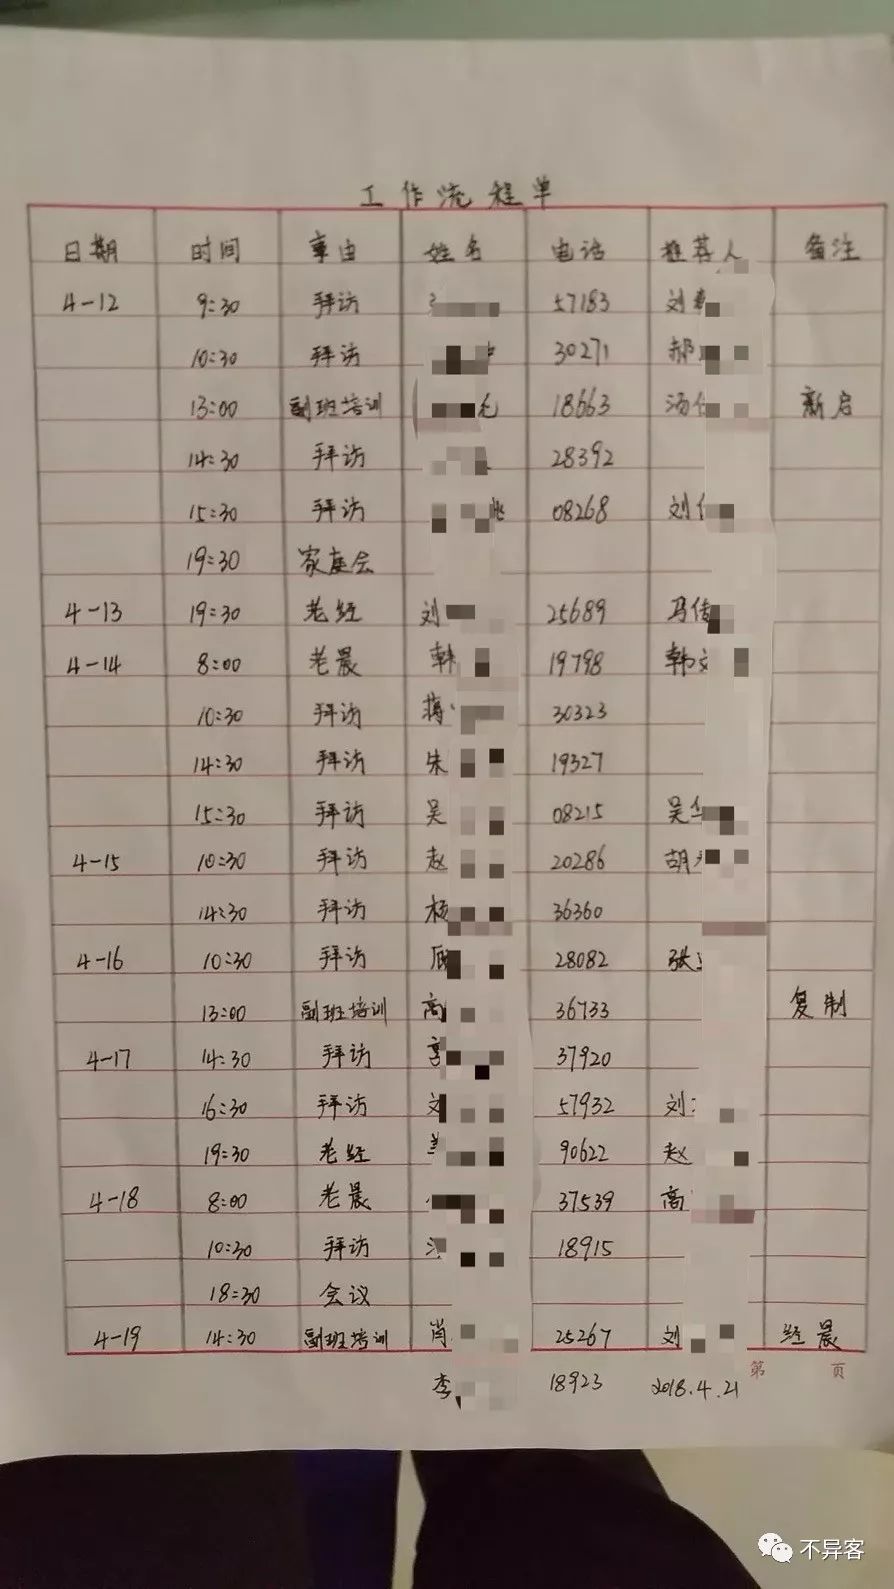 工作流程单
日期 时间 事由 姓名 电话 推荐人 备注
4-12 9:30 拜访 57183 刘
10:30 拜访 30271 郝
13:00 副班培训 18663 汤 新启
14:30 拜访 28392
15:30 拜访 08268 刘
19:30 家庭会
4-13 19:30 老经 刘 25689 马传
4-14 8:00 老晨 韩 19798 韩
10:30 拜访 蒋 30323
14:30 拜访 朱 19327
15:30 拜访 吴 08215 吴华
4-15 10:30 拜访 赵 20286 胡
14:30 拜访 杨 36360
4-16 10:30 拜访 28082 张
13:00 副班培训 高 36733 复制
4-17 14:30 拜访 37920
16:30 拜访 57932 刘
19:30 老经 90622 赵
4-18 8:00 老晨 37539 高
10:30 拜访 18915
18:30 会议
4-19 14:30 副班培训 肖 25267 刘 经晨
第 页
李 18923 2018.4.21
不异客